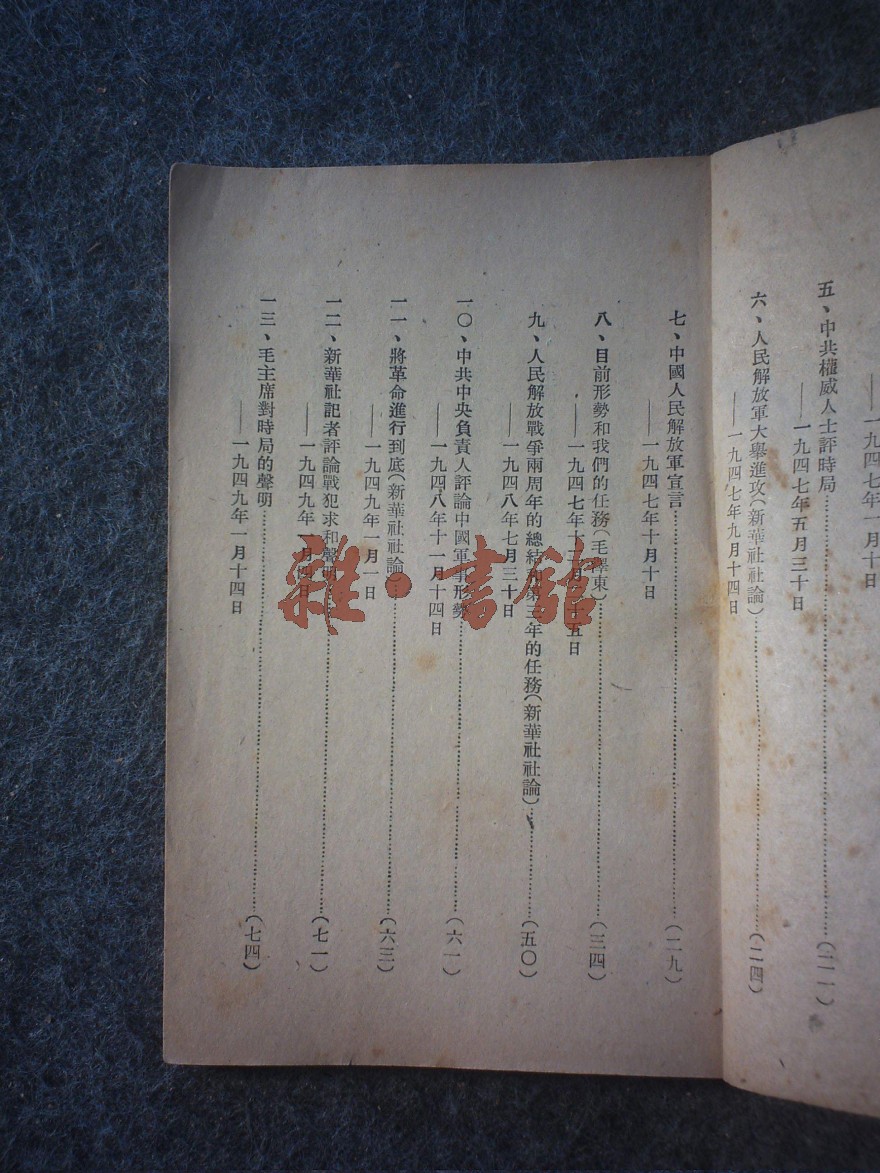 一九四七年一月十日
五、中共權威人士評時局……(二一)
——一九四七年五月三十日
六、人民解放軍大舉進攻(新華社社論)……(二四)
——一九四七年九月十四日
七、中國人民解放軍宣言……(二九)
——一九四七年十月十日
八、目前形勢和我們的任務(毛澤東)……(三四)
——一九四七年十二月二十五日
九、人民解放戰爭兩周年的總結和第三年的任務(新華社社論)……(五〇)
——一九四八年七月三十日
一〇、中共中央負責人評論中國軍事形勢……(六一)
——一九四八年十一月十四日
一一、將革命進行到底(新華社社論)……(六三)
——一九四九年一月一日
一二、新華社記者評論戰犯求和聲明……(七一)
——一九四九年一月四日
一三、毛主席對時局的聲明……(七四)
——一九四九年一月十四日
雜·書館